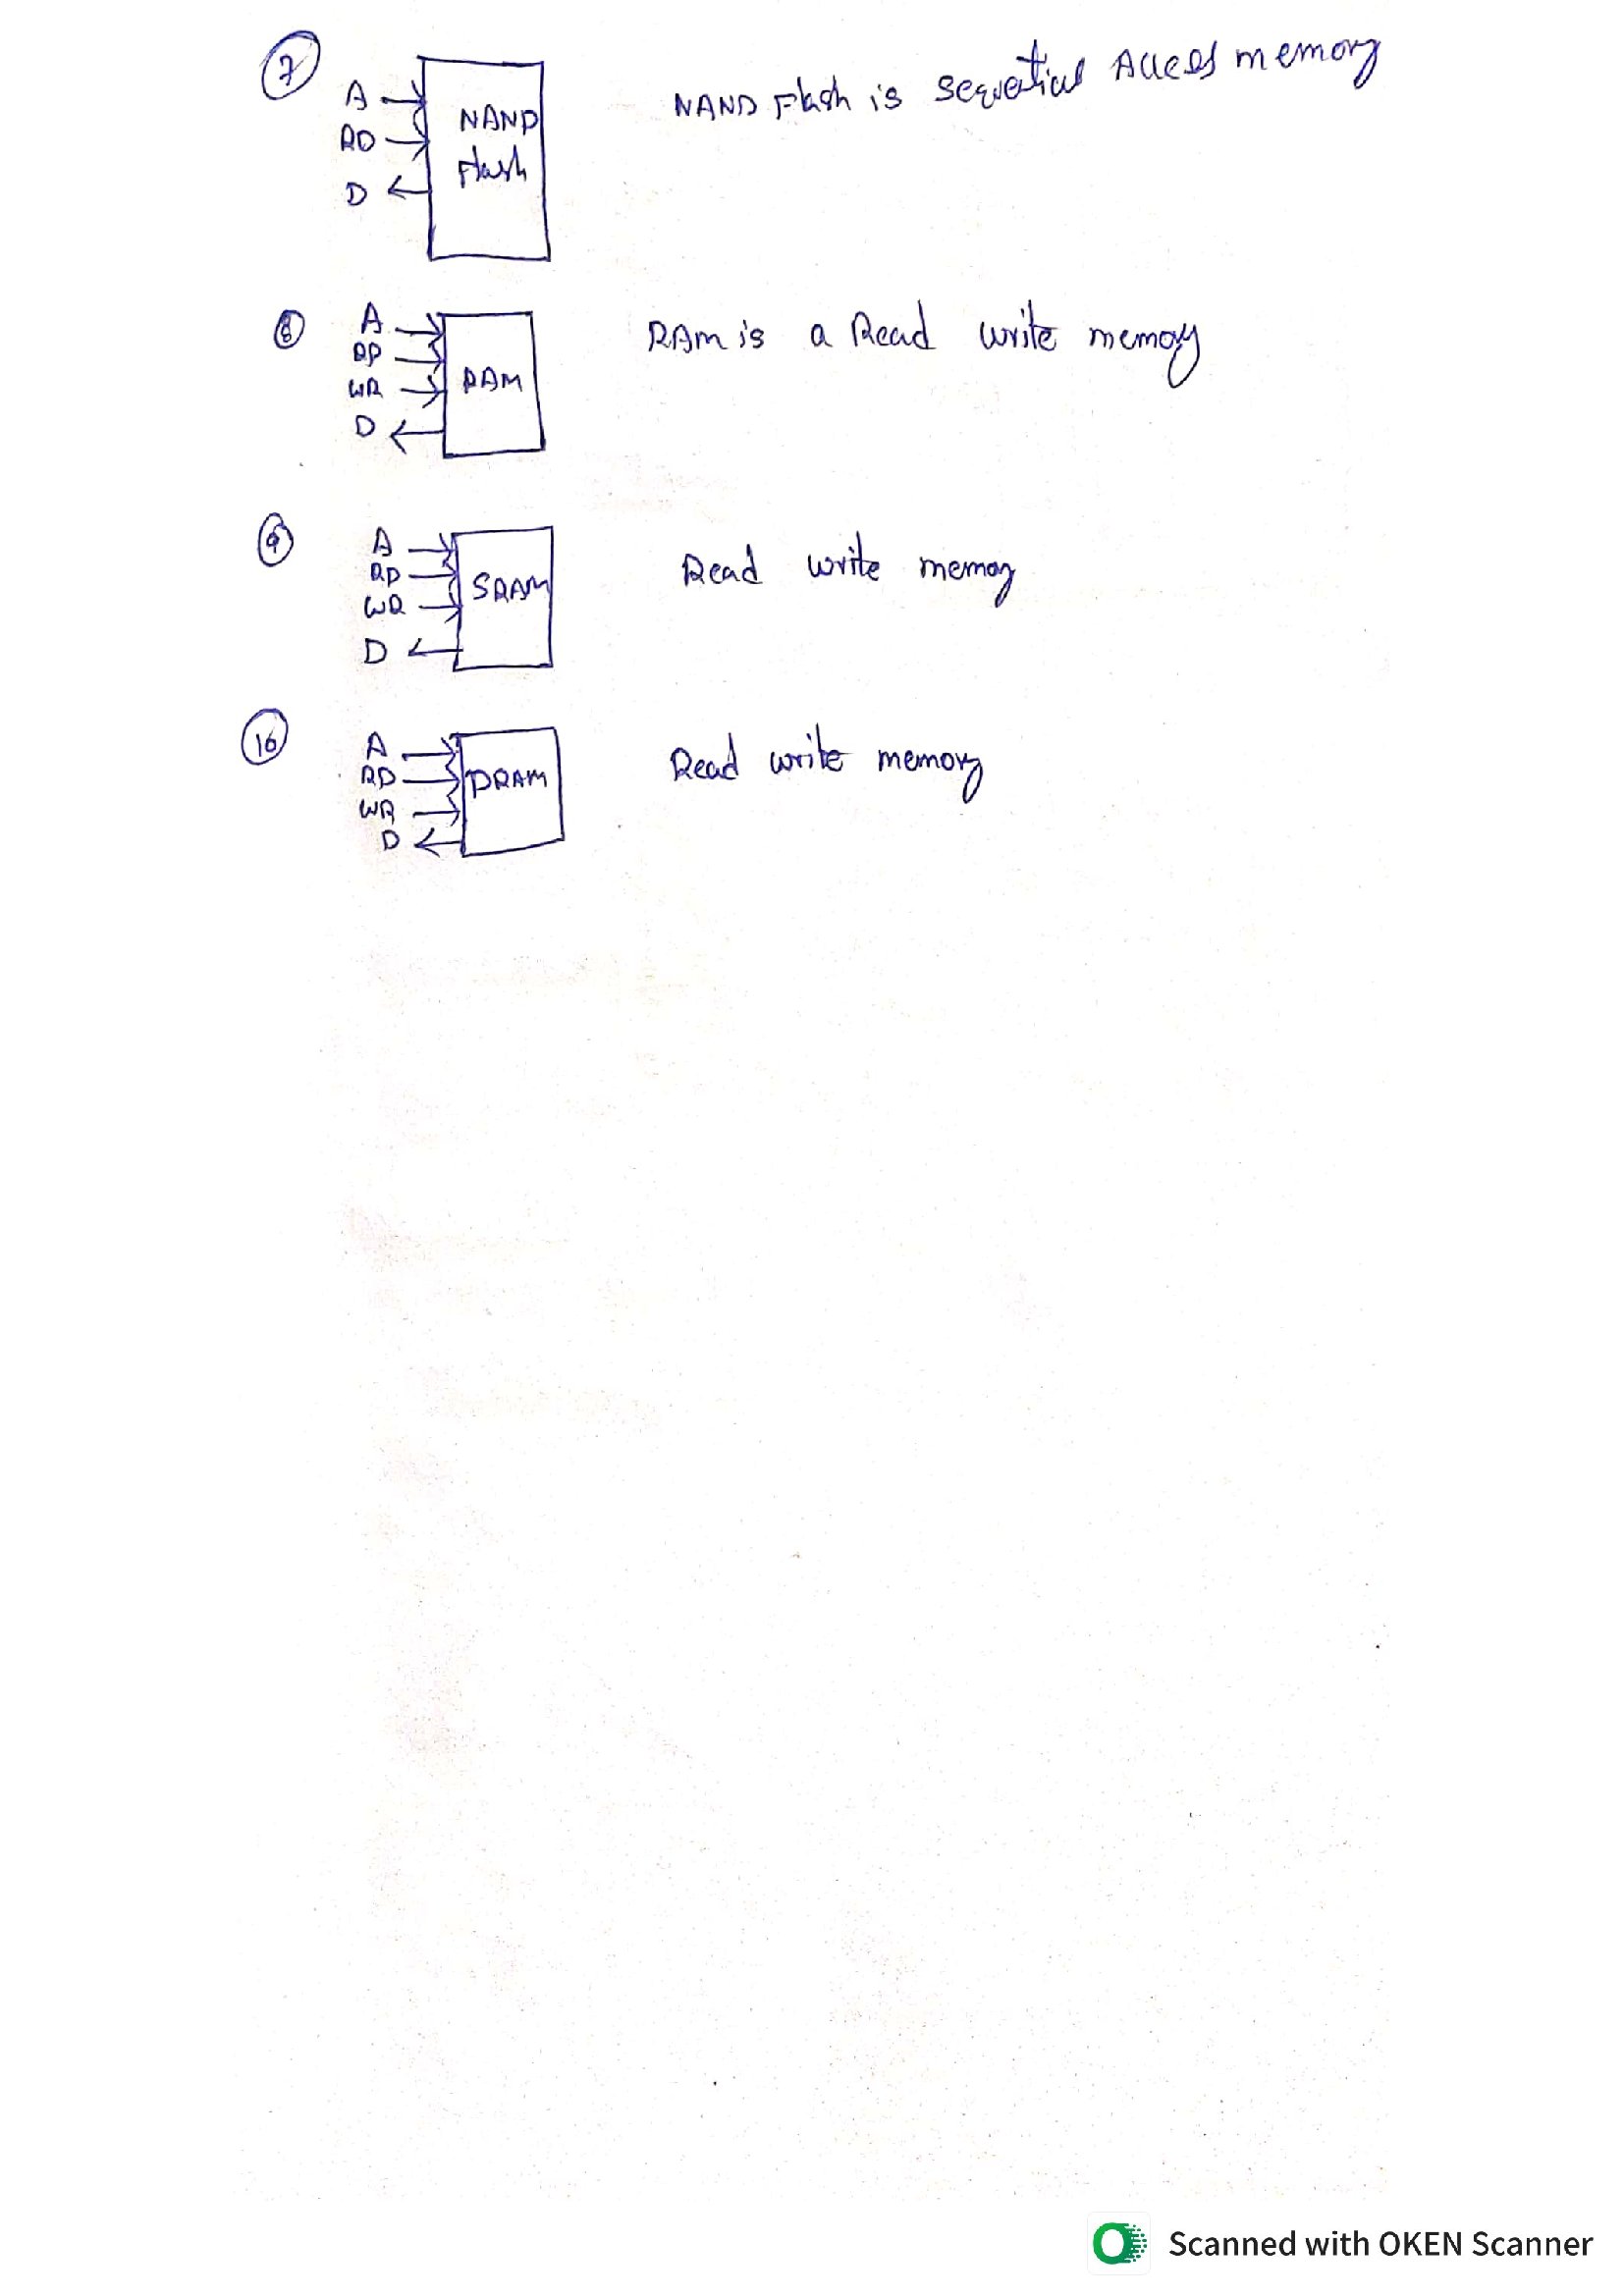 7
A
RD
D
NAND
Flash
NAND Flash is sequential Access memory
8
A
RD
WR
D
RAM
RAM is a Read write memory
9
A
RD
WR
D
SRAM
Read write memory
10
A
RD
WR
D
DRAM
Read write memory
Scanned with OKEN Scanner